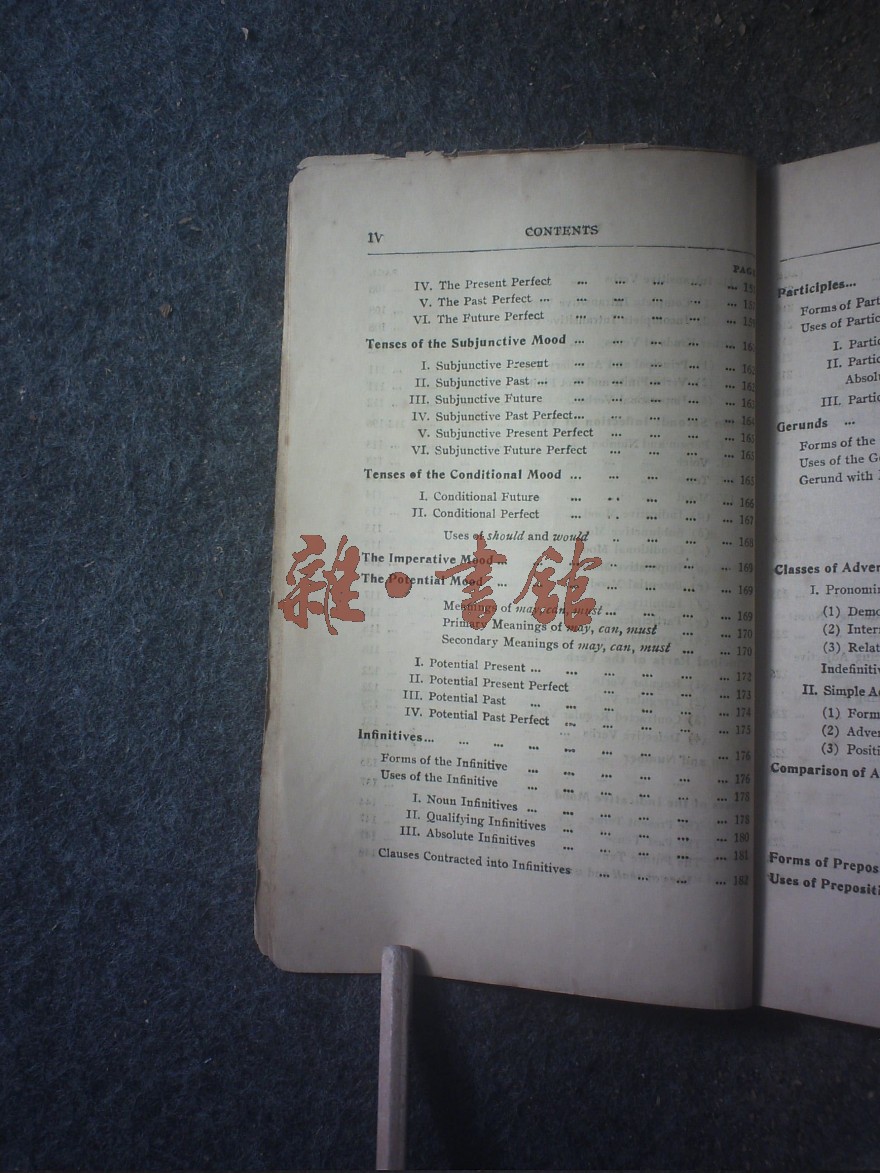 IV
CONTENTS
IV. The Present Perfect ... ... ... ... ...
V. The Past Perfect ... ... ... ... ...
VI. The Future Perfect ... ... ... ... ...
Tenses of the Subjunctive Mood ... ... ... ... ...
I. Subjunctive Present ... ... ... ... ... 162
II. Subjunctive Past ... ... ... ... ... ... 162
III. Subjunctive Future ... ... ... ... ... 163
IV. Subjunctive Past Perfect... ... ... ... ... 164
V. Subjunctive Present Perfect ... ... ... ... 165
VI. Subjunctive Future Perfect ... ... ... ... 165
Tenses of the Conditional Mood ... ... ... ... ... 165
I. Conditional Future ... ... ... ... ... 166
II. Conditional Perfect ... ... ... ... ... 167
Uses of should and would ... ... ... ... 168
The Imperative Mood ... ... ... ... ... ... 169
The Potential Mood ... ... ... ... ... ... ... 169
Meanings of may, can, must ... ... ... ... 169
Primary Meanings of may, can, must ... ... 170
Secondary Meanings of may, can, must ... ... 170
I. Potential Present ... ... ... ... ... ... 172
II. Potential Present Perfect ... ... ... ... 173
III. Potential Past ... ... ... ... ... ... 174
IV. Potential Past Perfect ... ... ... ... ... 175
Infinitives... ... ... ... ... ... ... ... ... 176
Forms of the Infinitive ... ... ... ... ... ... 176
Uses of the Infinitive ... ... ... ... ... ... 178
I. Noun Infinitives ... ... ... ... ... ... 178
II. Qualifying Infinitives ... ... ... ... ... 180
III. Absolute Infinitives ... ... ... ... ... 181
Clauses Contracted into Infinitives ... ... ... ... 182
Participles...
Forms of
Uses of
I.
II.
III.
Gerunds ...
Forms of the
Uses of the
Gerund with
Classes of
I.
(1)
(2)
(3)
II. Simple
(1)
(2)
(3)
Comparison of
Forms of
Uses of
雜·書館